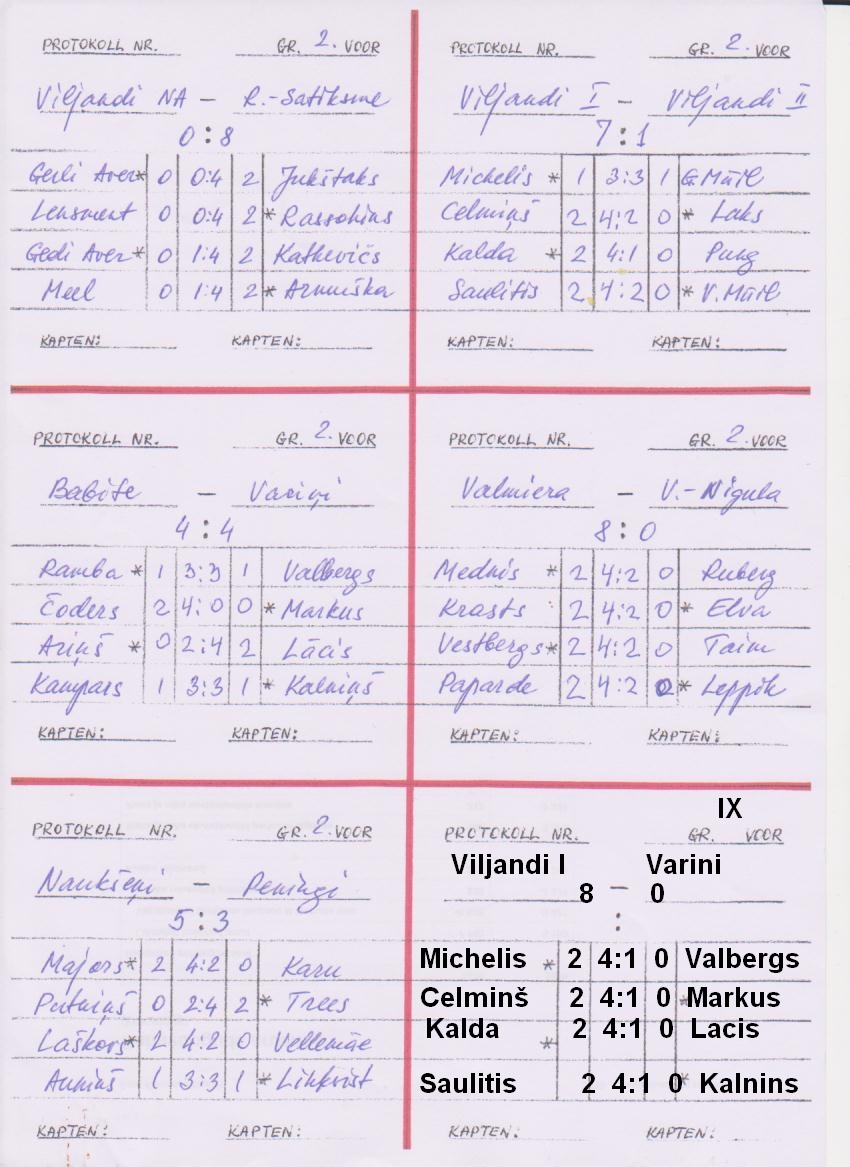 PROTOKOLL NR. GR. 2. VOOR
Viljandi NA – R.-Satiksme
0:8
Gerli Aver* 0 0:4 2 Jukštaks
Lensment 0 0:4 2 * Rassohins
Gedi Aver* 0 1:4 2 Katkevičs
Meel 0 1:4 2 * Azmuška
KAPTEN: KAPTEN:
PROTOKOLL NR. GR. 2. VOOR
Viljandi I – Viljandi II
7:1
Michelis * 1 3:3 1 G.Müil
Celmiņš 2 4:2 0 * Laks
Kalda * 2 4:1 0 Pung
Saulitis 2 4:2 0 * V.Müil
KAPTEN: KAPTEN:
PROTOKOLL NR. GR. 2. VOOR
Babite – Variņi
4:4
Ramba * 1 3:3 1 Valbergs
Čoders 2 4:0 0 * Markus
Ariņš * 0 2:4 2 Lācis
Kampars 1 3:3 1 * Kalniņš
KAPTEN: KAPTEN:
PROTOKOLL NR. GR. 2. VOOR
Valmiera – V.-Nigula
8:0
Mednis * 2 4:2 0 Ruberg
Krasts 2 4:2 0 * Elva
Vestbergs * 2 4:2 0 Taim
Paparde 2 4:2 0 * Leppik
KAPTEN: KAPTEN:
PROTOKOLL NR. GR. 2. VOOR
Naukšeņi – Peningi
5:3
Majors* 2 4:2 0 Karu
Putniņš 0 2:4 2 * Trees
Laškovs* 2 4:2 0 Vellemäe
Auniņš 1 3:3 1 * Lihkvist
KAPTEN: KAPTEN:
IX
PROTOKOLL NR. GR. VOOR
Viljandi I – Varini
8 : 0
Michelis * 2 4:1 0 Valbergs
Celminš 2 4:1 0 *Markus
Kalda * 2 4:1 0 Lacis
Saulitis 2 4:1 0 * Kalnins
KAPTEN: KAPTEN: